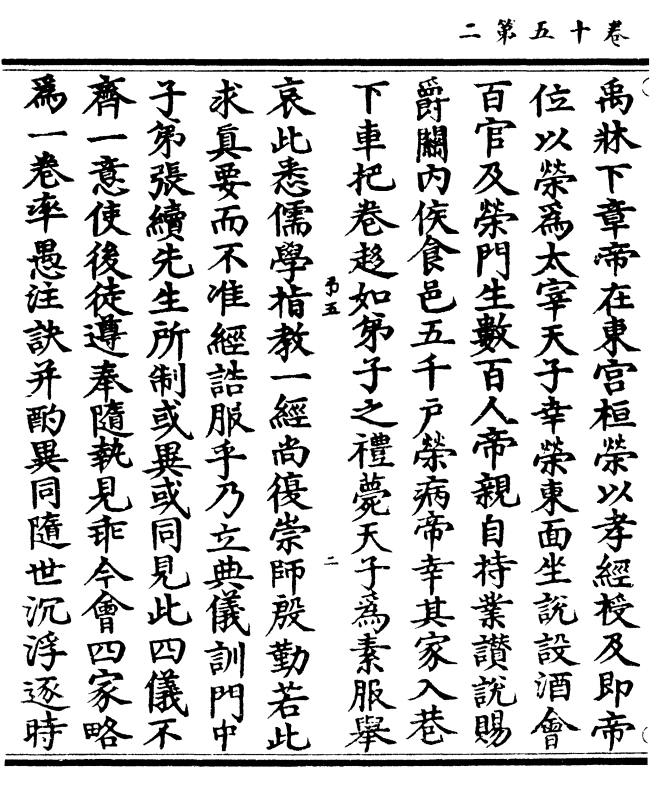 卷十五第二
禹牀下章帝在東宮桓榮以孝經授及即帝
位以榮爲太宰天子幸榮東面坐説設酒會
百官及榮門生數百人帝親自持業讃説賜
爵關內侯食邑五千户榮病帝幸其家入巷
下車把卷趍如弟子之禮薨天子爲素服舉
哀此悉儒學指教一經尚復崇師殷勤若此
第五
二
求真要而不准經誥服乎乃立典儀訓門中
子弟張續先生所制或異或同見此四儀不
齊一意使後徒遵奉隨執見乖今會四家略
爲一卷率愚注訣并酌異同隨世沉浮逐時